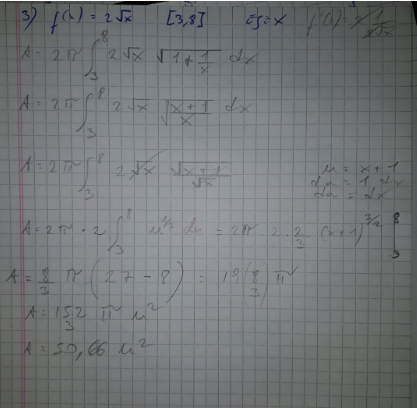 3) f(x) = 2√x [3,8] eje x f'(x) = 1/√x
A = 2π ∫₃⁸ 2√x √(1 + 1/x) dx
A = 2π ∫₃⁸ 2√x √((x+1)/x) dx
A = 2π ∫₃⁸ 2√x √(x+1)/√x
u = x + 1
du = 1 dx
du = dx
A = 2π · 2 ∫₃⁸ u^(1/2) du = 2π · 2 · 2/3 (x+1)^(3/2) |₃⁸
A = 8/3 π (27 - 8) = 19 (8/3) π
A = 152/3 π u²
A = 50,66 u²